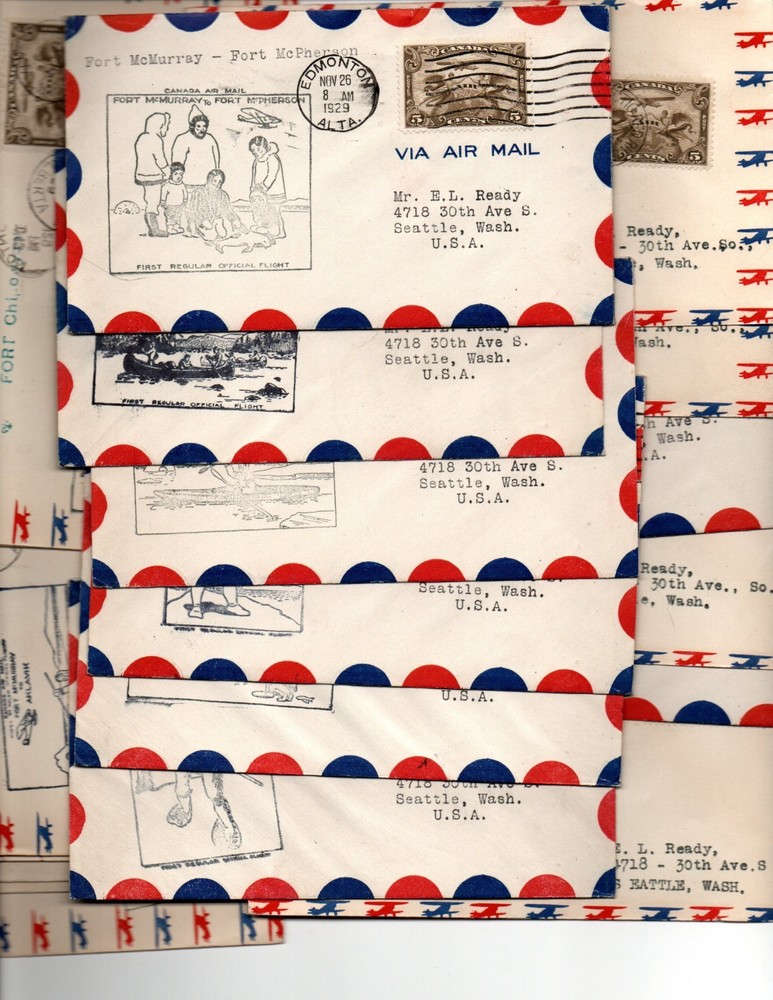 Fort McMurray - Fort McPherson
CANADA AIR MAIL
FORT McMURRAY TO FORT McPHERSON
FIRST REGULAR OFFICIAL FLIGHT
EDMONTON
NOV 26
8 AM
1929
ALTA.
CANADA
5 5
CENTS
VIA AIR MAIL
Mr. E.L. Ready
4718 30th Ave S.
Seattle, Wash.
U.S.A.
FIRST REGULAR OFFICIAL FLIGHT
Mr. E.L. Ready
4718 30th Ave S.
Seattle, Wash.
U.S.A.
4718 30th Ave S.
Seattle, Wash.
U.S.A.
FIRST REGULAR OFFICIAL FLIGHT
Seattle, Wash.
U.S.A.
U.S.A.
4718 30th Ave S.
Seattle, Wash.
U.S.A.
FIRST REGULAR OFFICIAL FLIGHT
CANADA
5
Ready,
- 30th Ave.So.,
, Wash.
Ave., So.,
ash.
h Ave S.
, Wash.
.A.
Ready,
30th Ave., So.
e, Wash.
E. L. Ready,
4718 - 30th Ave.S
SEATTLE, WASH.
FORT Chi
FORT McMURRAY
TO
AKLAVIK